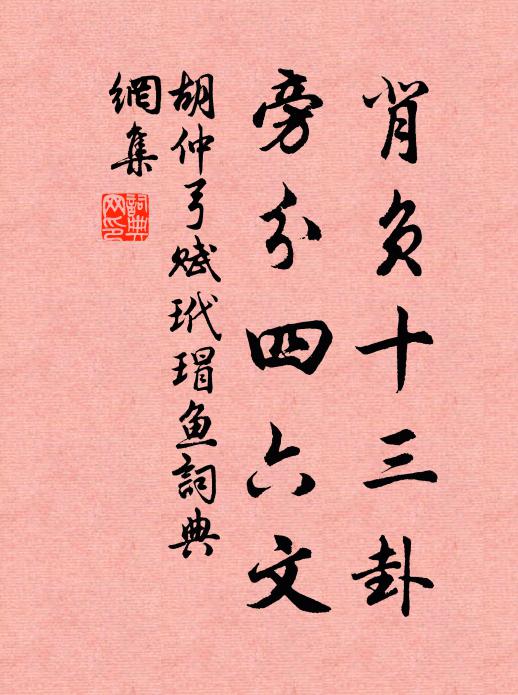 背负十三卦
旁分四六文
胡仲弓赋玳瑁鱼詞典
網集
詞典
网印